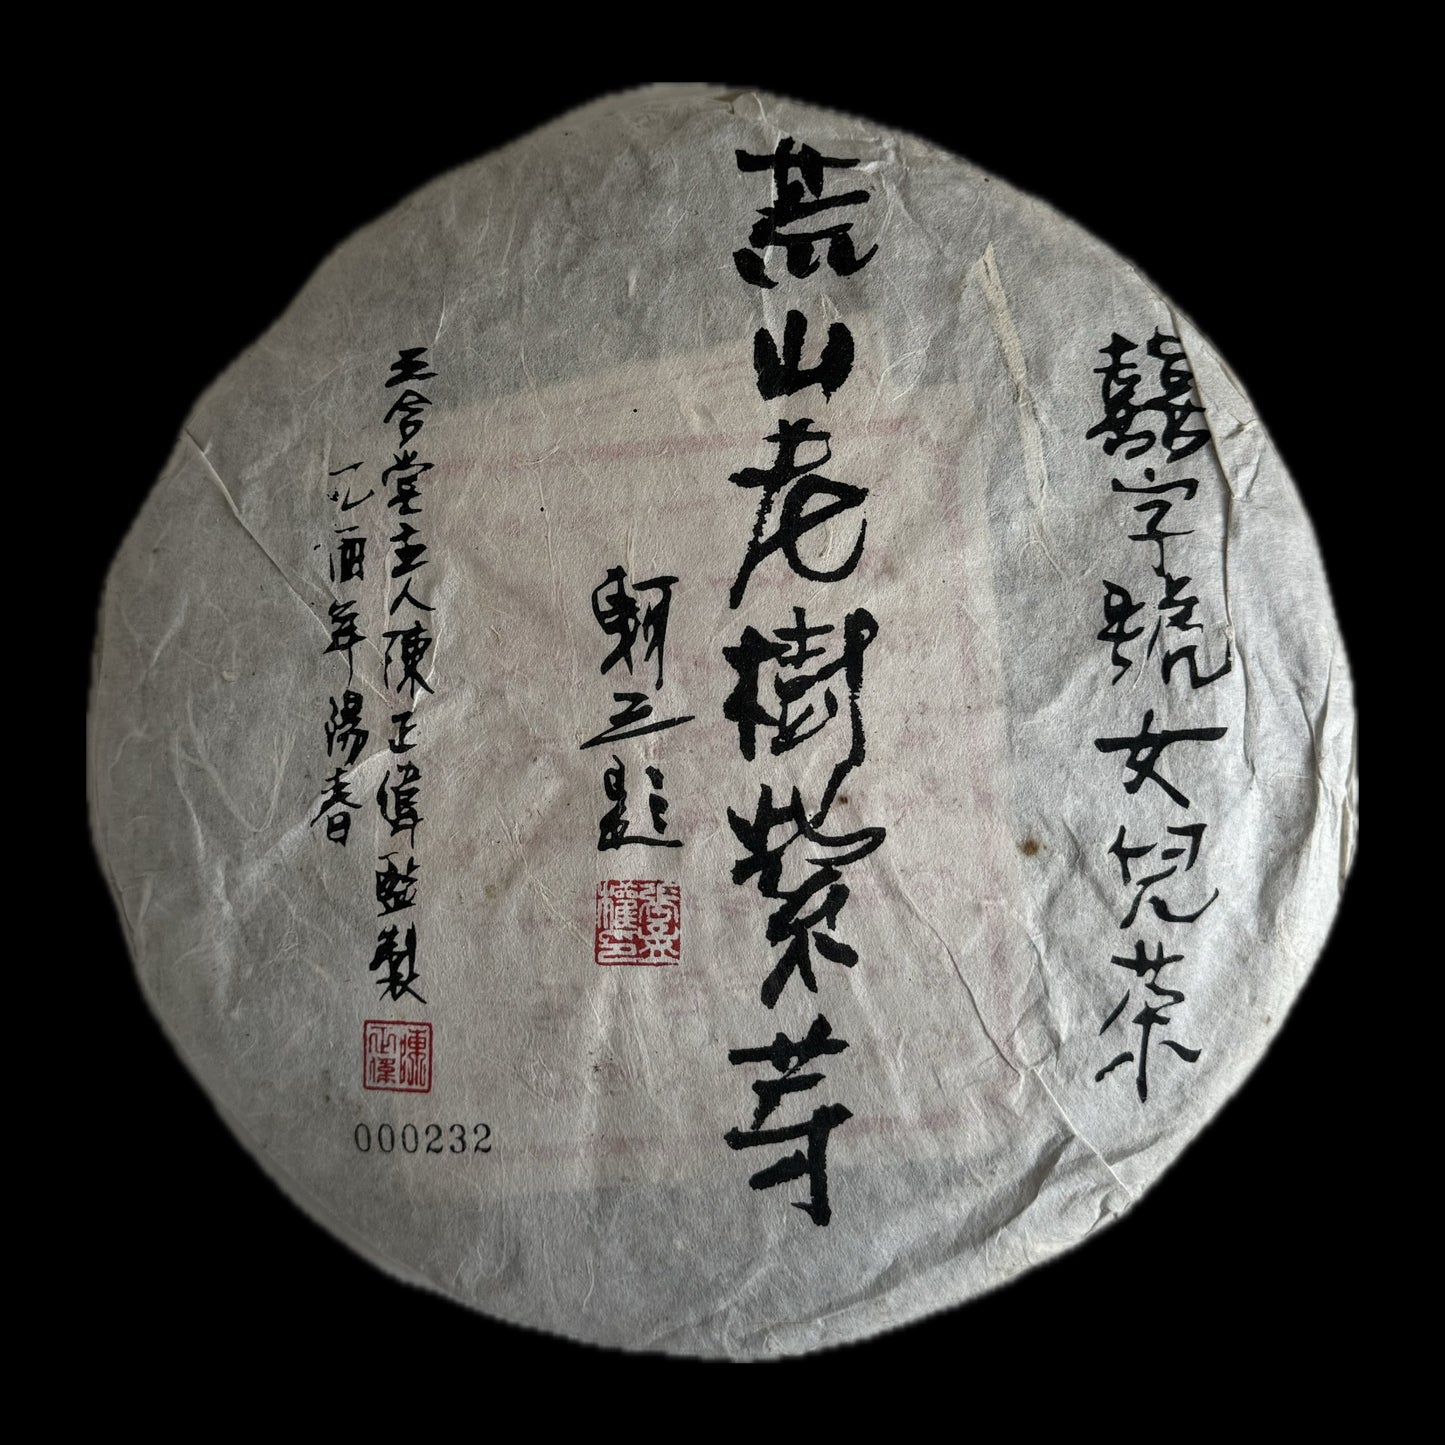 囍字號女兒茶
荒山老樹紫芽
三題
三合堂主人陳正偉監製
乙酉年陽春
陳正偉
000232